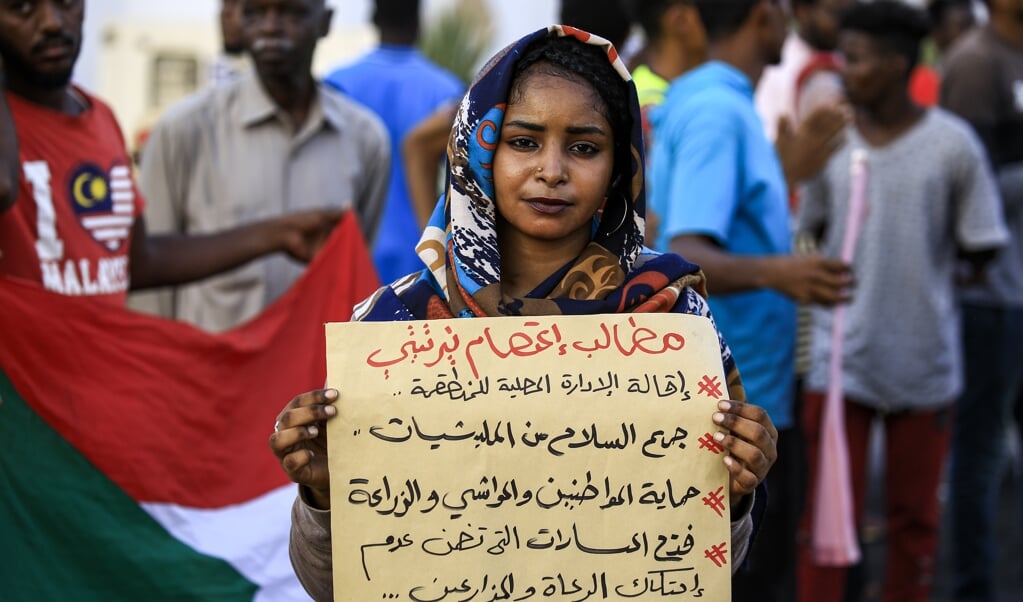 مطالب إعتصام نيرتيتي
# إقالة الإدارة المحلية للمنطقة ..
# جمع السلاح من المليشيات ..
# حماية المواطنين والمواشي والزراعة
# فتح المسارات التي تضمن عدم
إحتكاك الرعاة والمزارعين ...
I
MALAYSIA